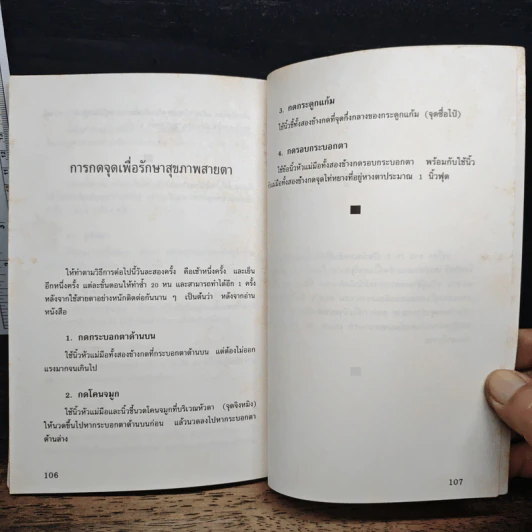 การกดจุดเพื่อรักษาสุขภาพสายตา
ให้ทำตามวิธีการต่อไปนี้วันละสองครั้ง คือเช้าหนึ่งครั้ง และเย็น
อีกหนึ่งครั้ง แต่ละขั้นตอนให้ทำซ้ำ 20 หน และสามารถทำได้อีก 1 ครั้ง
หลังจากใช้สายตาอย่างหนักติดต่อกันนาน ๆ เป็นต้นว่า หลังจากอ่าน
หนังสือ
1. กดกระบอกตาด้านบน
ใช้นิ้วหัวแม่มือทั้งสองข้างกดที่กระบอกตาด้านบน แต่ต้องไม่ออก
แรงมากจนเกินไป
2. กดโคนจมูก
ใช้นิ้วหัวแม่มือและนิ้วชี้นวดโคนจมูกที่บริเวณหัวตา (จุดจิงหมิง)
ให้นวดขึ้นไปหากระบอกตาด้านบนก่อน แล้วนวดลงไปหากระบอกตา
ด้านล่าง
106
3. กดกระดูกแก้ม
ใช้นิ้วชี้ทั้งสองข้างกดที่จุดกึ่งกลางของกระดูกแก้ม (จุดซื่อไป๋)
4. กดรอบกระบอกตา
ใช้ข้อนิ้วหัวแม่มือทั้งสองข้างกดรอบกระบอกตา พร้อมกับใช้นิ้ว
แม่มือทั้งสองข้างกดจุดไท่หยางที่อยู่หางตาประมาณ 1 นิ้วฟุต
107